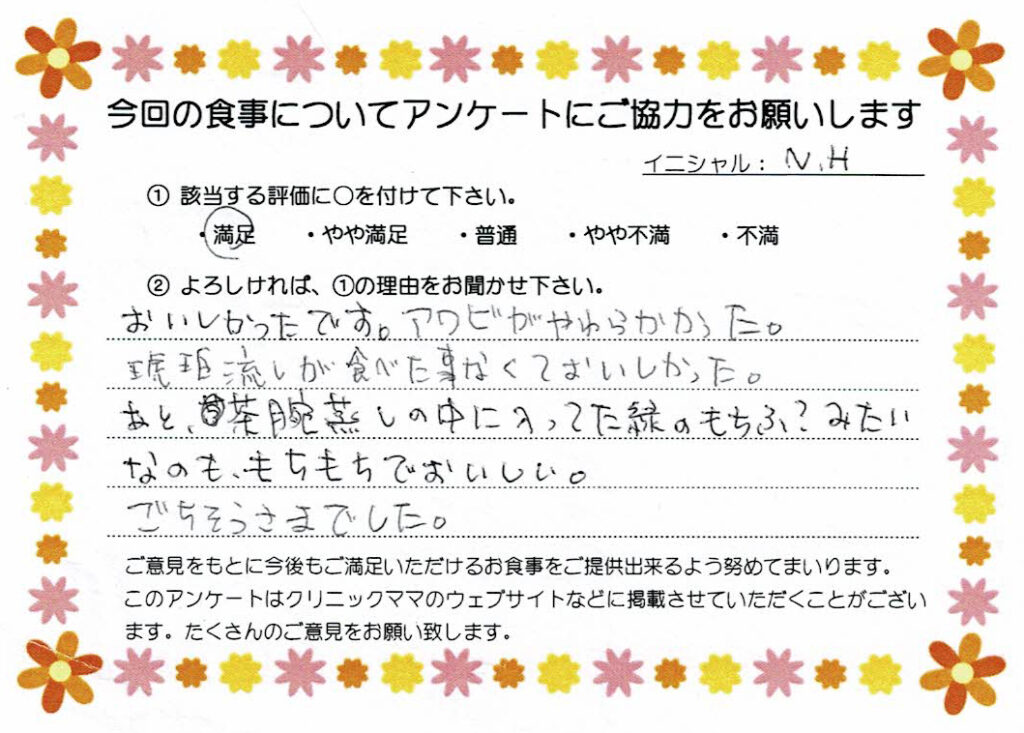 今回の食事についてアンケートにご協力をお願いします
イニシャル： N.H
① 該当する評価に○を付けて下さい。
・満足 ・やや満足 ・普通 ・やや不満 ・不満
② よろしければ、①の理由をお聞かせ下さい。
おいしかったです。アワビがやわらかかった。
琥珀流しが食べた事なくておいしかった。
あと、茶腕蒸しの中に入ってた緑のもちふ？みたい
なのも、もちもちでおいしい。
ごちそうさまでした。
ご意見をもとに今後もご満足いただけるお食事をご提供出来るよう努めてまいります。
このアンケートはクリニックママのウェブサイトなどに掲載させていただくことがござい
ます。たくさんのご意見をお願い致します。